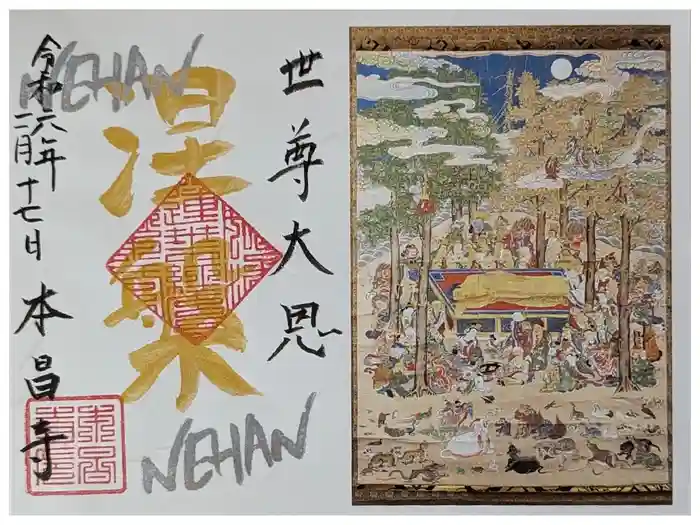 世尊大恩
NEHAN
涅槃
NEHAN
令和六年二月十七日 本昌寺